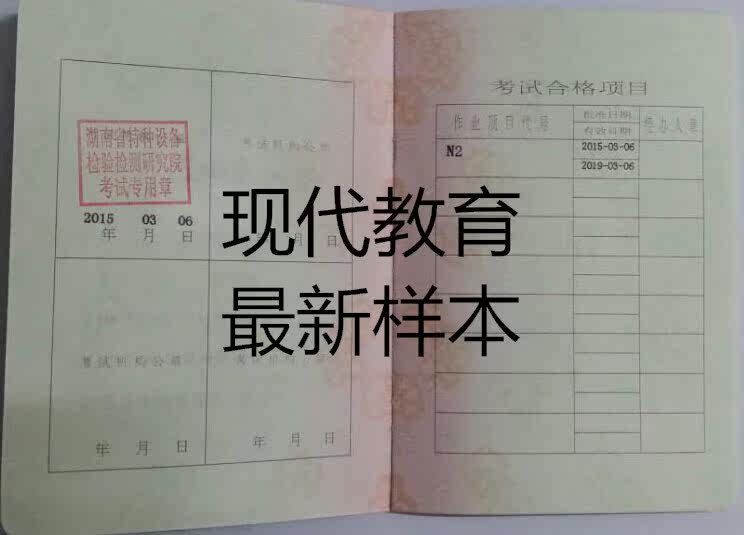 湖南省特种设备
检验检测研究院
考试专用章
2015 03 06
年 月 日
考试机构公章
月 日
考试机构公章
年 月 日
年 月 日
考试合格项目
作业项目代号
批准日期
有效日期
经办人章
N2
2015-03-06
2019-03-06
现代教育
最新样本